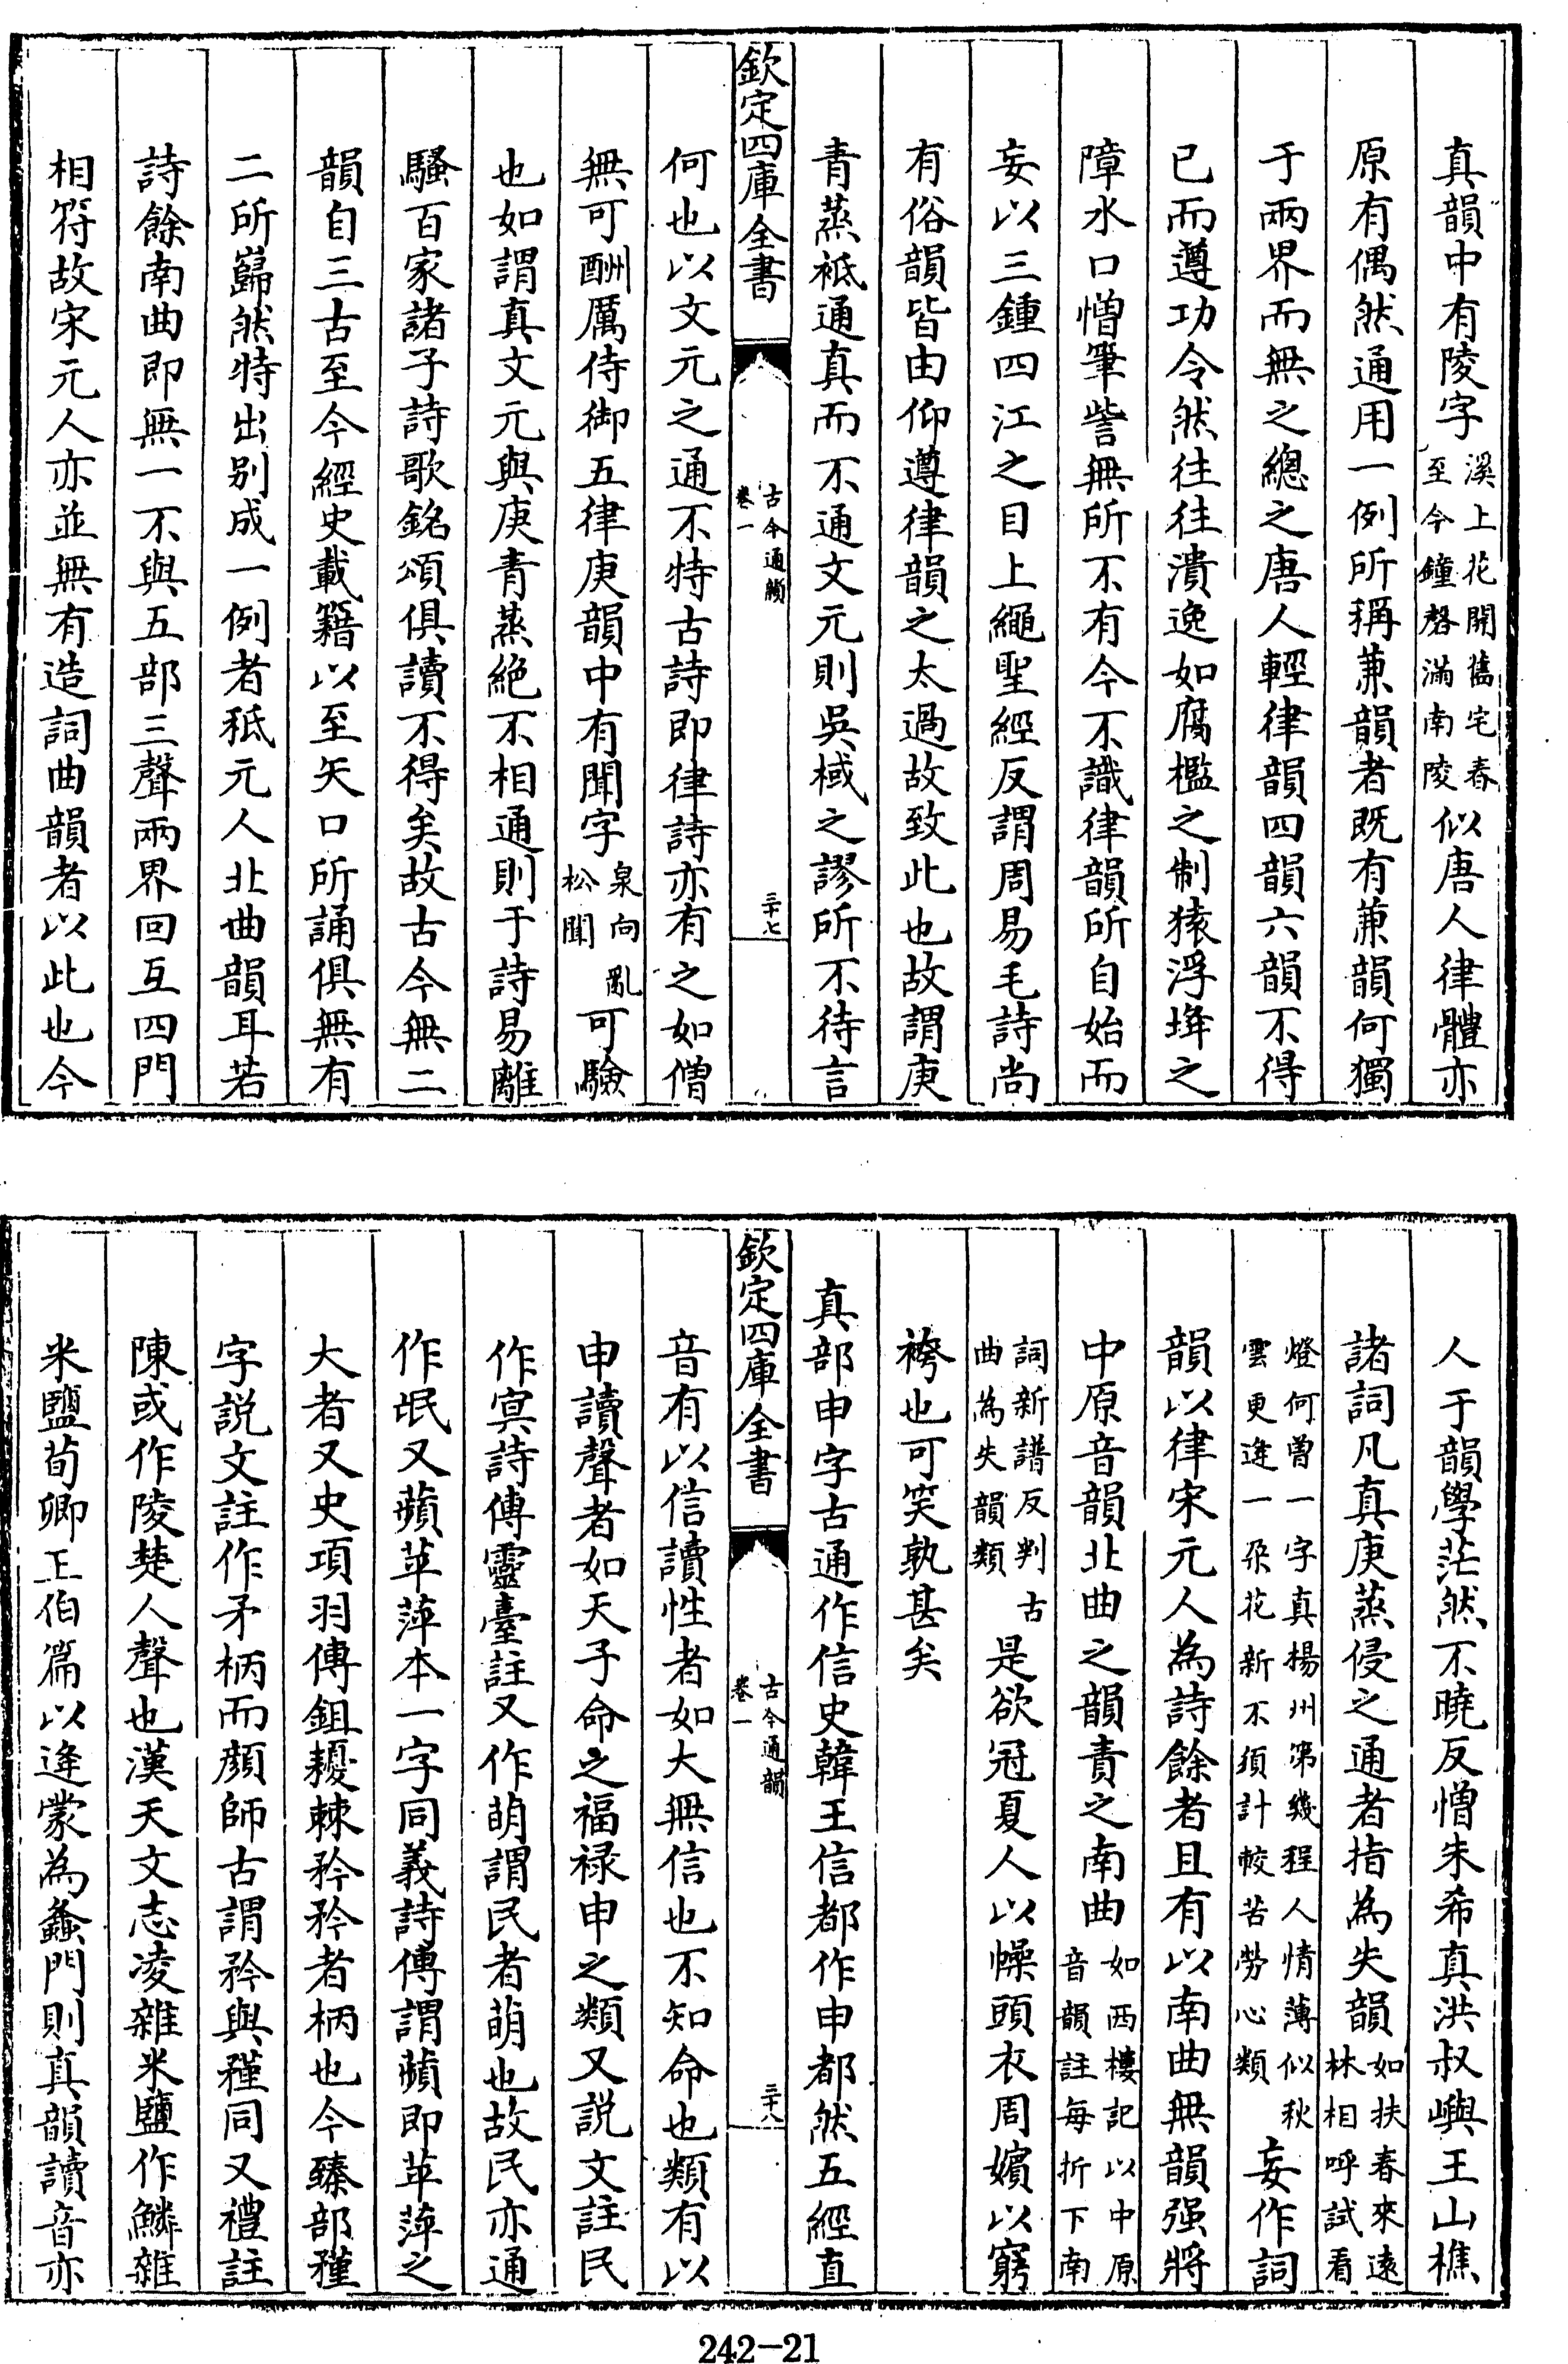 真韻中有陵字溪上花開舊宅春至今鐘磬滿南陵似唐人律體亦
原有偶然通用一例所稱兼韻者既有兼韻何獨
于兩界而無之總之唐人輕律韻四韻六韻不得
已而遵功令然往往潰逸如腐檻之制猿浮埄之
障水口憎筆訾無所不有今不識律韻所自始而
妄以三鍾四江之目上繩聖經反謂周易毛詩尚
有俗韻皆由仰遵律韻之太過故致此也故謂庚
青蒸祗通真而不通文元則吳棫之謬所不待言
欽定四庫全書
古今通韻
卷一
三十七
何也以文元之通不特古詩即律詩亦有之如僧
無可酬厲侍御五律庚韻中有聞字泉向亂松聞可驗
也如謂真文元與庚青蒸絶不相通則于詩易離
騷百家諸子詩歌銘頌俱讀不得矣故古今無二
韻自三古至今經史載籍以至矢口所誦俱無有
二所巋然特出别成一例者秪元人北曲韻耳若
詩餘南曲即無一不與五部三聲兩界回互四門
相符故宋元人亦並無有造詞曲韻者以此也今
人于韻學茫然不曉反憎朱希真洪叔嶼王山樵
諸詞凡真庚蒸侵之通者指為失韻如扶春來遠林相呼試看
燈何曾一字真楊州第幾程人情薄似秋雲更逢一朶花新不須計較苦勞心類妄作詞
韻以律宋元人為詩餘者且有以南曲無韻强將
中原音韻北曲之韻責之南曲如西樓記以中原音韻註每折下南
詞新譜反判古曲為失韻類是欲冠夏人以幧頭衣周嬪以窮
袴也可笑孰甚矣
真部申字古通作信史韓王信都作申都然五經直
欽定四庫全書
古今通韻
卷一
三十八
音有以信讀性者如大無信也不知命也類有以
申讀聲者如天子命之福禄申之類又説文註民
作㝠詩傳靈臺註又作萌謂民者萌也故民亦通
作氓又蘋苹萍本一字同義詩傳謂蘋即苹萍之
大者又史項羽傳鉏耰棘矜矜者柄也今臻部㻧
字説文註作矛柄而顔師古謂矜與㻧同又禮註
陳或作陵楚人聲也漢天文志凌雜米鹽作鱗雜
米鹽荀卿正伯篇以逄蒙為蠭門則真韻讀音亦
242-21